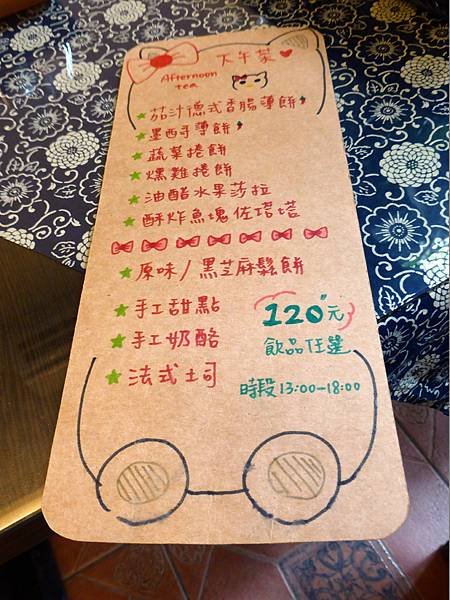 下午茶
Afternoon
tea
茄汁德式香腸薄餅
墨西哥薄餅
蔬菜捲餅
燻雞捲餅
油醋水果莎拉
酥炸魚塊佐塔塔
原味/黑芝麻鬆餅
手工甜點
手工奶酪
法式土司
120元
飲品任選
時段13:00-18:00